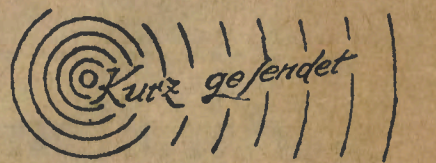 Kurz geſendet